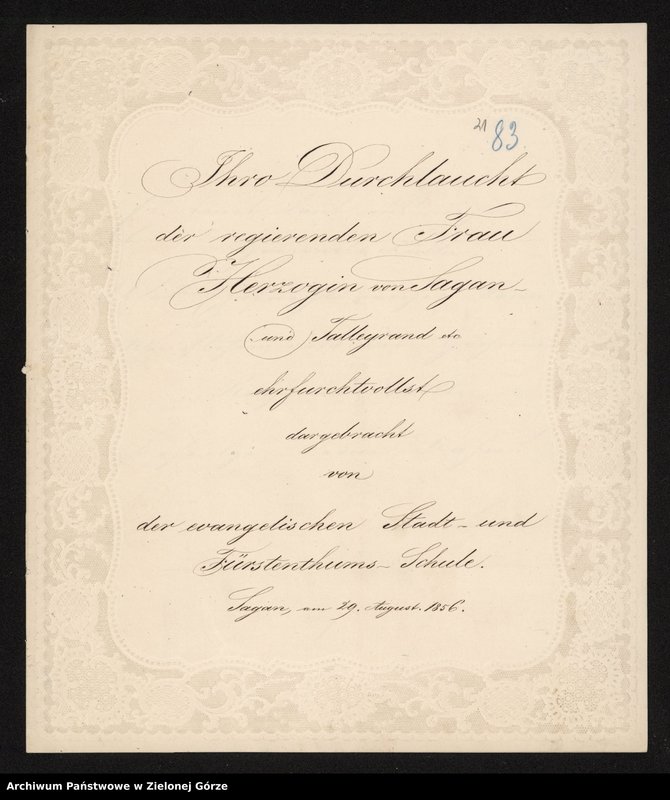 21 83
Ihro Durchlaucht
der regierenden Frau
Herzogin von Sagan-
und Talleyrand etc
ehrfurchtvollst
dargebracht
von
der evangelischen Stadt- und
Fürstenthums- Schule.
Sagan, am 29. August. 1856.
Archiwum Państwowe w Zielonej Górze